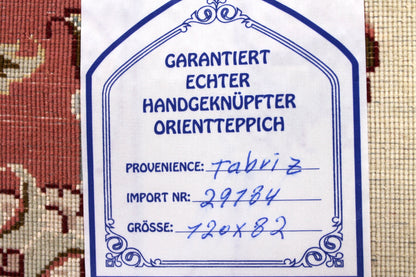 GARANTIERT
ECHTER
HANDGEKNÜPFTER
ORIENTTEPPICH
PROVENIENCE: Tabriz
IMPORT NR: 29784
GRÖSSE: 120x82